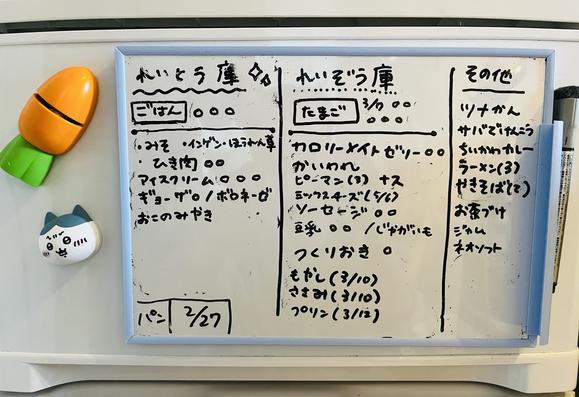 れいとう庫
ごはん ○○○
・みそ ・インゲン・ほうれん草
・ひき肉 ○○
アイスクリーム ○○○
ギョーザ○/ボロネーゼ
おこのみやき
パン 2/27
れいぞう庫
たまご 3/7 ○○
○○○
カロリーメイトゼリー○○
かいわれ
ピーマン(3) ナス
ミックスチーズ(5/6)
ソーセージ ○○
豆乳 ○○ /じゃがいも
つくりおき ○
もやし(3/10)
ささみ(3/10)
プリン(3/12)
その他
ツナかん
サバでけんこう
ちいかわカレー
ラーメン(3)
やきそば(2)
お茶づけ
ジャム
ネオソフト